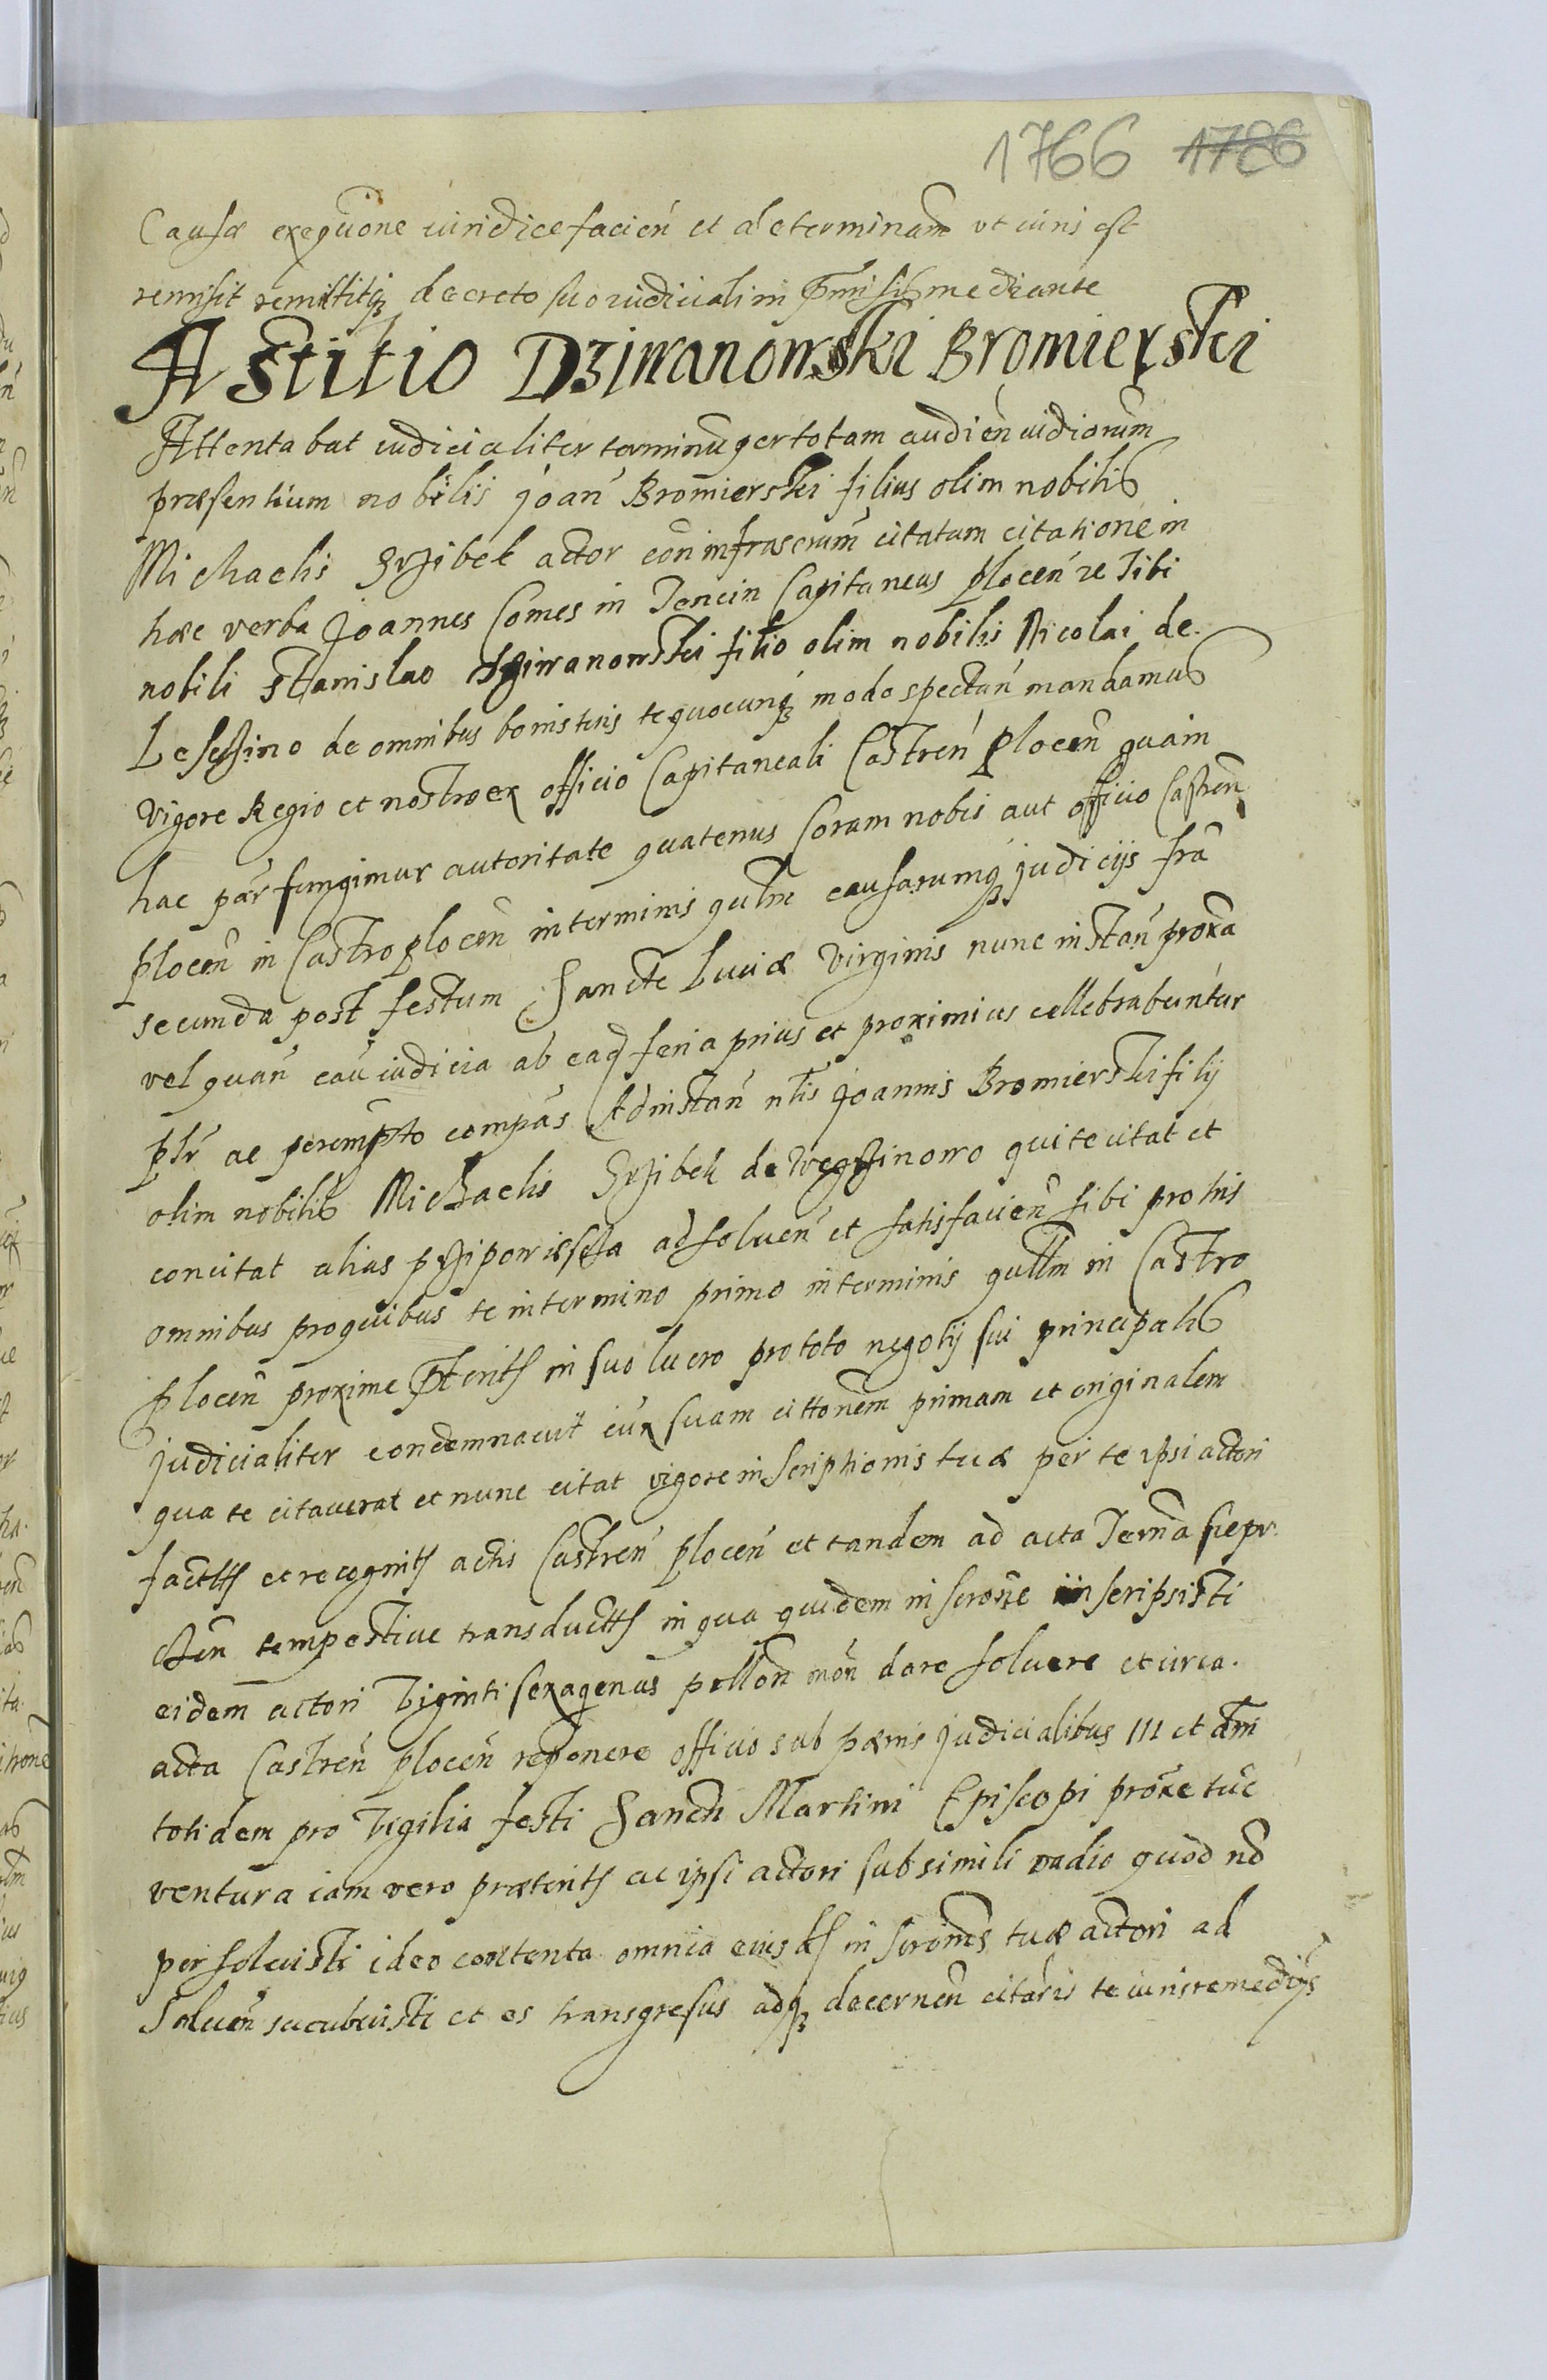 1766 1786
Causæ exequōne iuridice facień et determinam̃ ut iuris est
remisit remittitq decreto suo iudiciali in p̄missis mediante
Astitio Dziwanowski Bromierski
Attentabat iudicialiter terminũ per totam audień iudiciorum̃
præsentium nobilis joań Bromierski filius olim nobilis
Michaelis Grzibek actor con̄ infrascrum̃ citatum citatione in
hæc verba Joannes Comes in Tencin Capitaneus plocen̄ zc Tibi
nobili Stanislao Dziwanowski filio olim nobilis Nicolai de
Lessczino de omnibus bonis tuis te quocunq modo spectań mandamus
vigore Regio et nostro ex officio Capitaneali Castreń Plocen̄ quam
hac pār fungimur autoritate quatenus Coram nobis aut officio Castren̄
plocen̄ in Castro plocen̄ in terminis qułm causarumq judicijs fr̃a
secunda post festum Sanctæ Luciæ virginis nunc instań prox̃a
vel quań cau iudicia ab eaq feria prius et proximius cellebrabuntur
płr ac perempto compās Ad instań nlis Joannis Bromierski filij
olim nobilis Michaelis Grzibek de Wegrzinowo qui te citat et
concitat alias przipowiescza ad soluen̄ et satisfacien̄ sibi pro his
omnibus pro quibus te in termino primo in terminis qułłm in Castro
plocen̄ proxime p̄terits in suo lucro pro toto negotij sui principalis
judicialiter condemnauit iux suam cittōnem primam et originalem
qua te citauerat et nunc citat vigore inscriptionis tuæ per te ipsi actori
facts et recognits actis Castreń plocen̄ et tandem ad acta Terr̃a siepr
cten̄ tempestiue transducts in qua quidem inscrōne inscripsisti
eidem̄ actori Viginti sexagenas pollon̄ mon̄ dare soluere et circa
acta Castreń plocen̄ reponere officio sub pœnis judicialibus III et dm̃i
totidem pro vigilia festi Sancti Martini Episcopi prox̃e tuc̃
ventura iam vero præterits ac ipsi actori sub simili vadio quod nō
persoluisti ideo contenta omnia eiusds inscrōnis tuæ actori ad
soluen̄ sucubuisti et es transgresus adq decernen̄ citaris te iuris remedijs